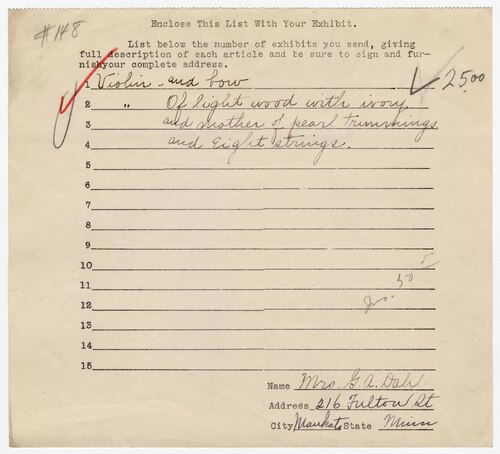 #148
Enclose This List With Your Exhibit.
List below the number of exhibits you send, giving
full description of each article and be sure to sign and fur-
nishyour complete address.
1 Violin - and bow 25.00
2 " Of light wood with ivory
3 and mother of pearl trimmings
4 and Eight strings.
5
6
7
8
9
10
11 50
12
13
14
15
Name Mrs. G. A. Dahl
Address 216 Fulton St
City Mankato State Minn